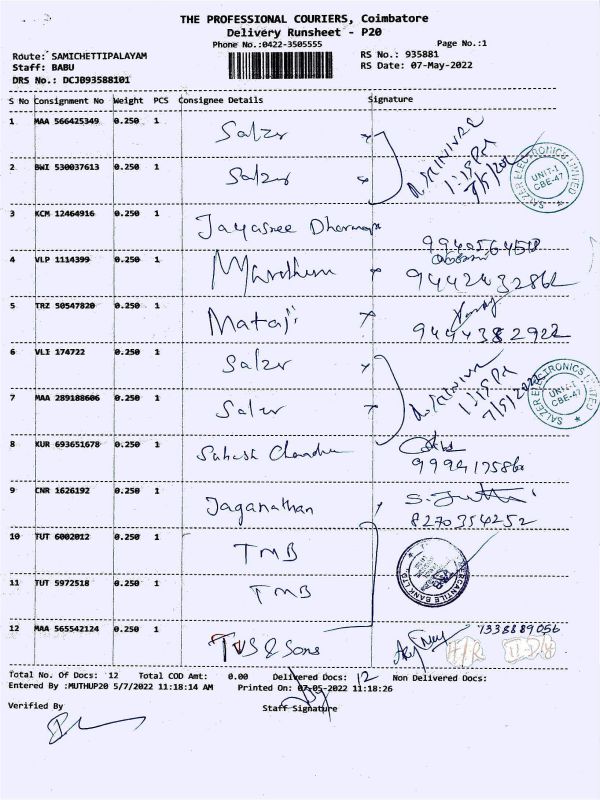 THE PROFESSIONAL COURIERS, Coimbatore
Delivery Runsheet - P20
Phone No.:0422-3505555 Page No.:1
Route: SAMICHETTIPALAYAM RS No.: 935881
Staff: BABU RS Date: 07-May-2022
DRS No.: DCJ093588101
S No Consignment No Weight PCS Consignee Details Signature
1 MAA 566425349 0.250 1 Salzer
1:15 PM
2 BWI 530037613 0.250 1 Salzer
SALZER ELECTRONICS LIMITED UNIT-I CBE-47
3 KCM 12464916 0.250 1 Jayasree
4 VLP 1114399 0.250 1
9442432862
5 TRZ 50547820 0.250 1 Mataji
9444382922
6 VLI 174722 0.250 1 Salzer
1:15 PM
7 MAA 289188606 0.250 1 Salzer 7/5/2022
SALZER ELECTRONICS LIMITED UNIT-I CBE-47
8 KUR 693651678 0.250 1
9 CNR 1626192 0.250 1 Jaganathan
8270354252
10 TUT 6002012 0.250 1 TMB
11 TUT 5972518 0.250 1 TMB
MERCANTILE BANK LTD
12 MAA 565542124 0.250 1 TVS & Sons 7338889056
Total No. Of Docs: 12 Total COD Amt: 0.00 Delivered Docs: 12 Non Delivered Docs:
Entered By :MUTHUP20 5/7/2022 11:18:14 AM Printed On: 07-05-2022 11:18:26
Verified By Staff Signature